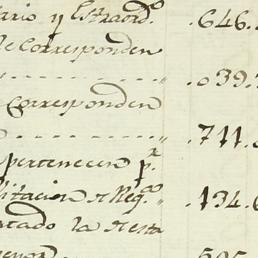 ario y Extraordº .646.
de Corresponden
. . . . . . . . .039.
Corresponden
. . . . . . . . .711.
pertenecen pr
litacion de Regº .134.6
ntado la de esta
505.